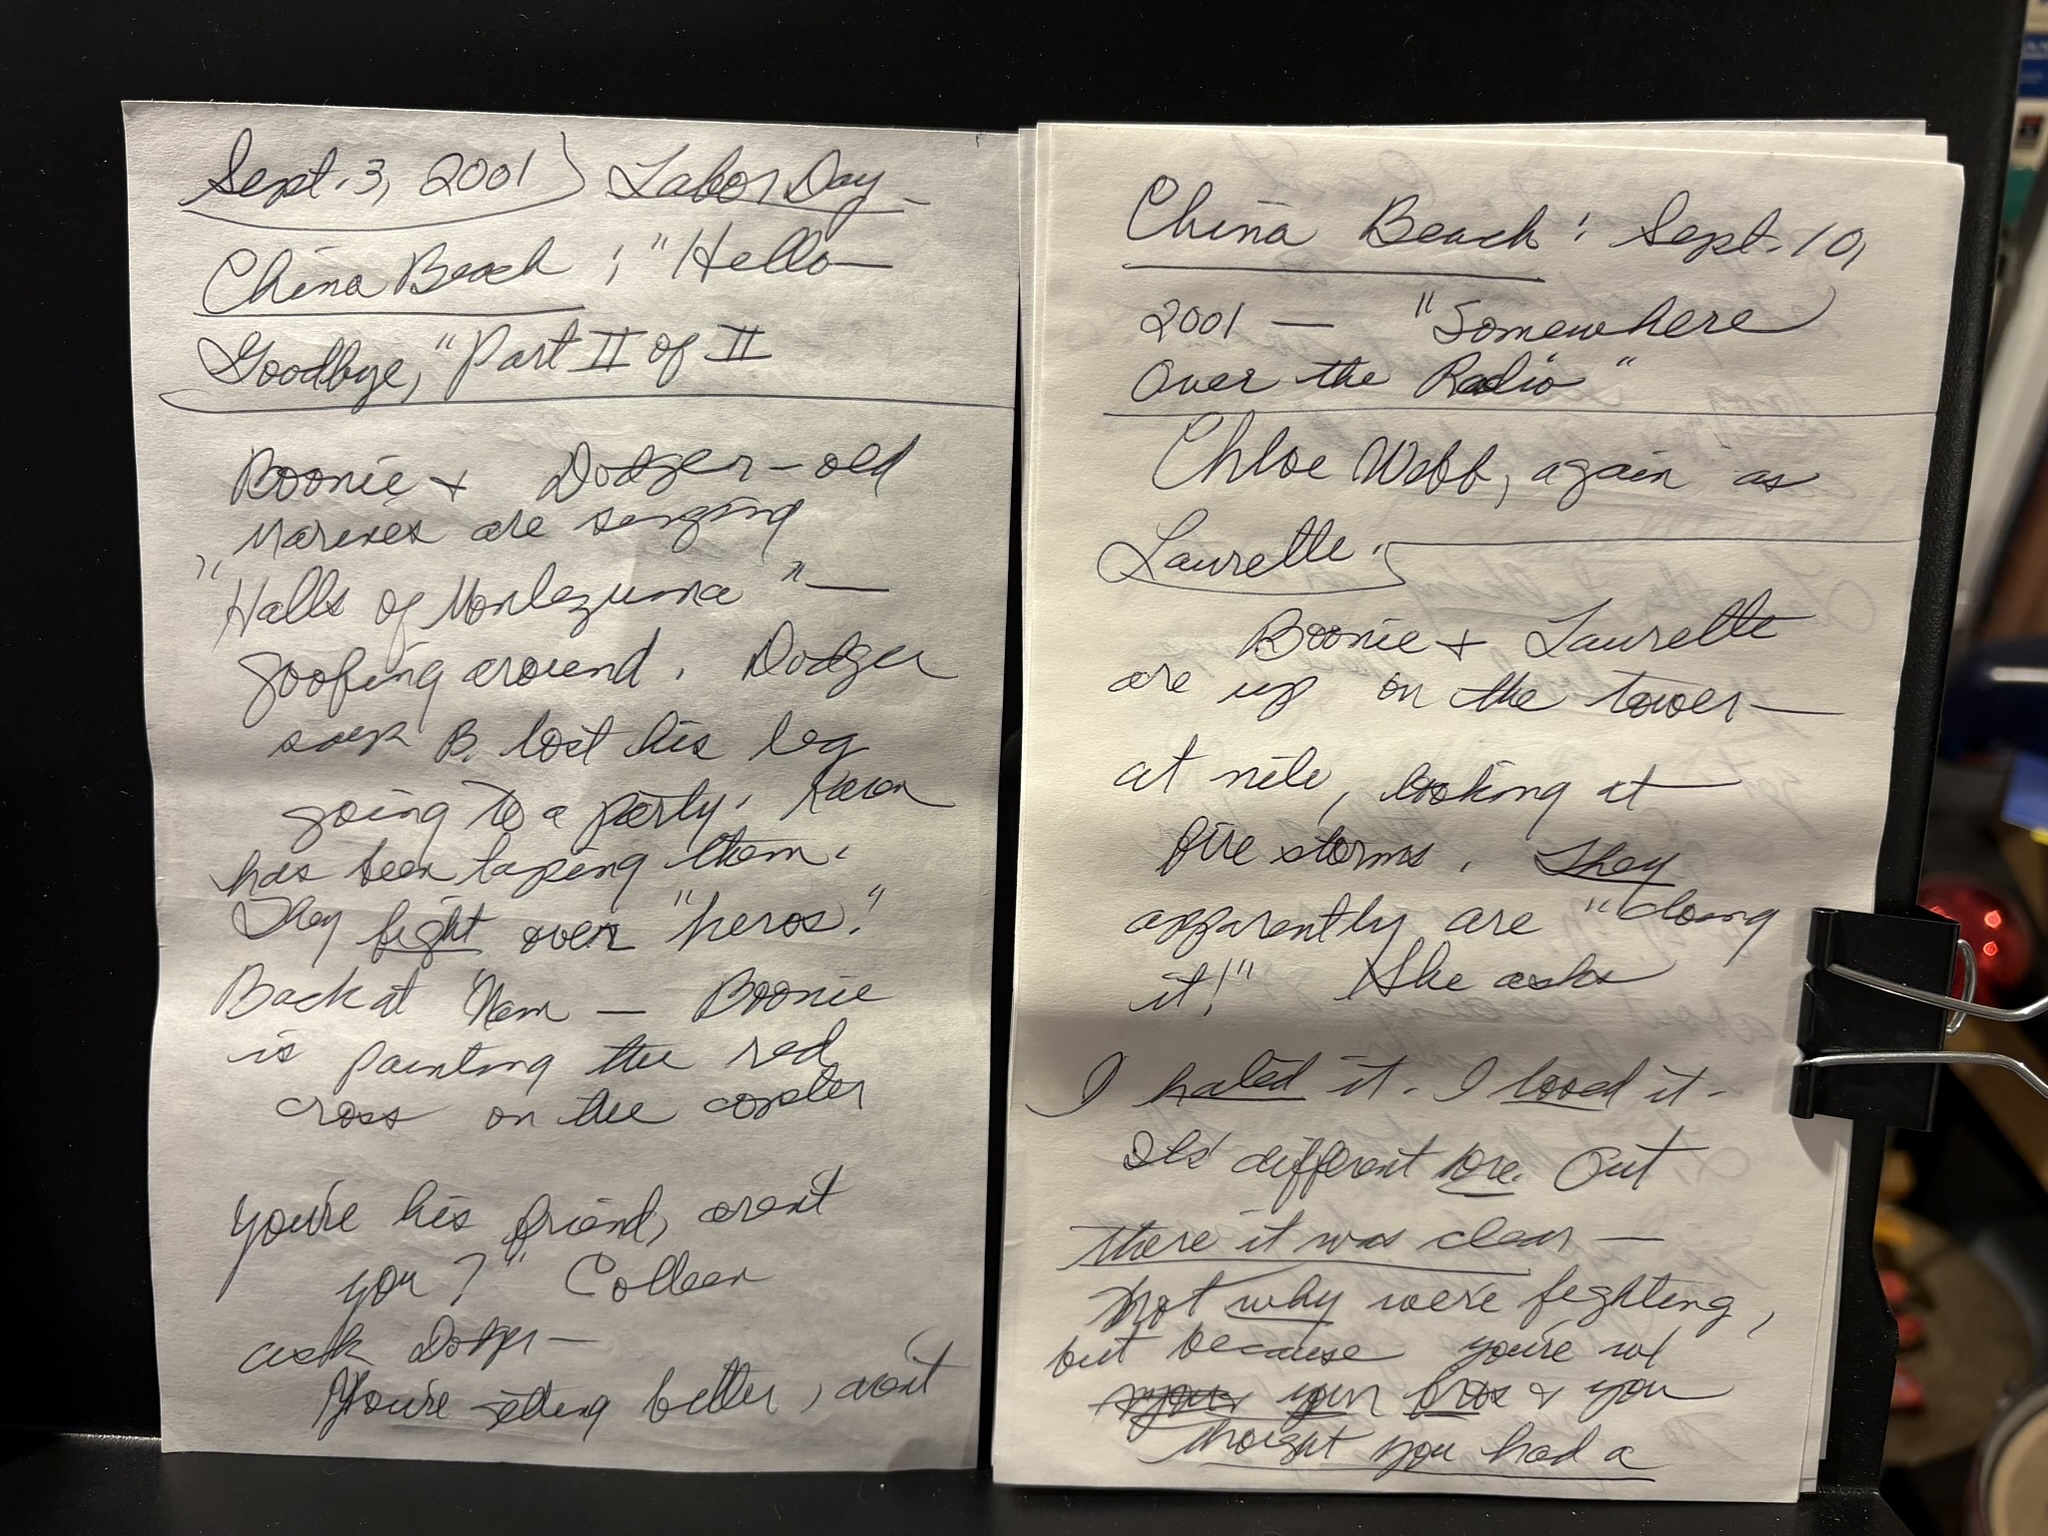 Sept. 3, 2001) Labor Day -
China Beach : "Hello-
Goodbye," Part II of II
Boonie + Dodger - old
Marines are singing
"Halls of Montezuma" -
goofing around. Dodger
says B. lost his leg
going to a party. Karen
has been taping them.
They fight over "heros."
Back at 'Nam - Boonie
is painting the red
cross on the copter
You're his friend, aren't
you?" Colleen
asks Dodger -
You're getting better, aren't
China Beach : Sept. 10,
2001 - "Somewhere
Over the Radio"
Chloe Webb, again as
Laurette.
Boonie + Laurette
are up on the tower -
at nite, looking at
fire storms. They
apparently are "doing
it!" She asks
I hated it. I loved it.
It's different here. Out
there it was clear -
not why we're fighting,
but because you're w/
your bros & you
thought you had a